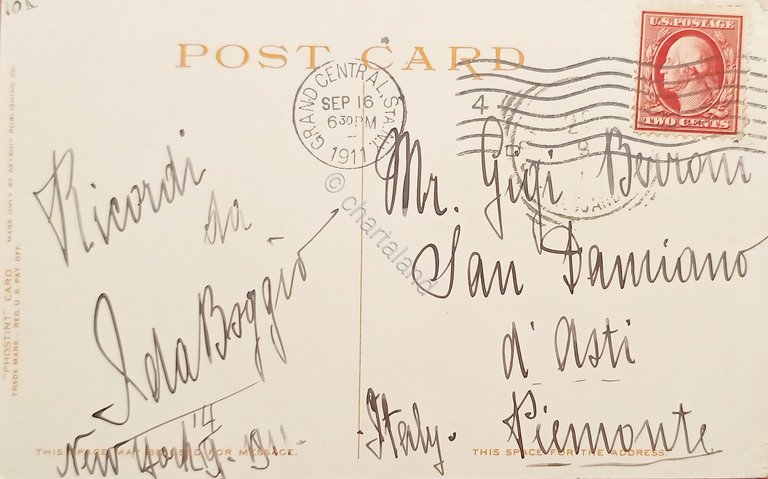 POST CARD
U.S. POSTAGE
TWO CENTS
GRAND CENTRAL STA. N.Y.
SEP 16
630PM
1911
4
Ricordi
da
Ida Boggio
New York 14/9. 1911.
Mr. Gigi Berroni
San Damiano
d'Asti
Italy. Piemonte
THIS SPACE MAY BE USED FOR MESSAGE.
THIS SPACE FOR THE ADDRESS.
"PHOSTINT" CARD MADE ONLY BY DETROIT PUBLISHING CO.
TRADE MARK - REG. U.S. PAT. OFF.
© chartaland